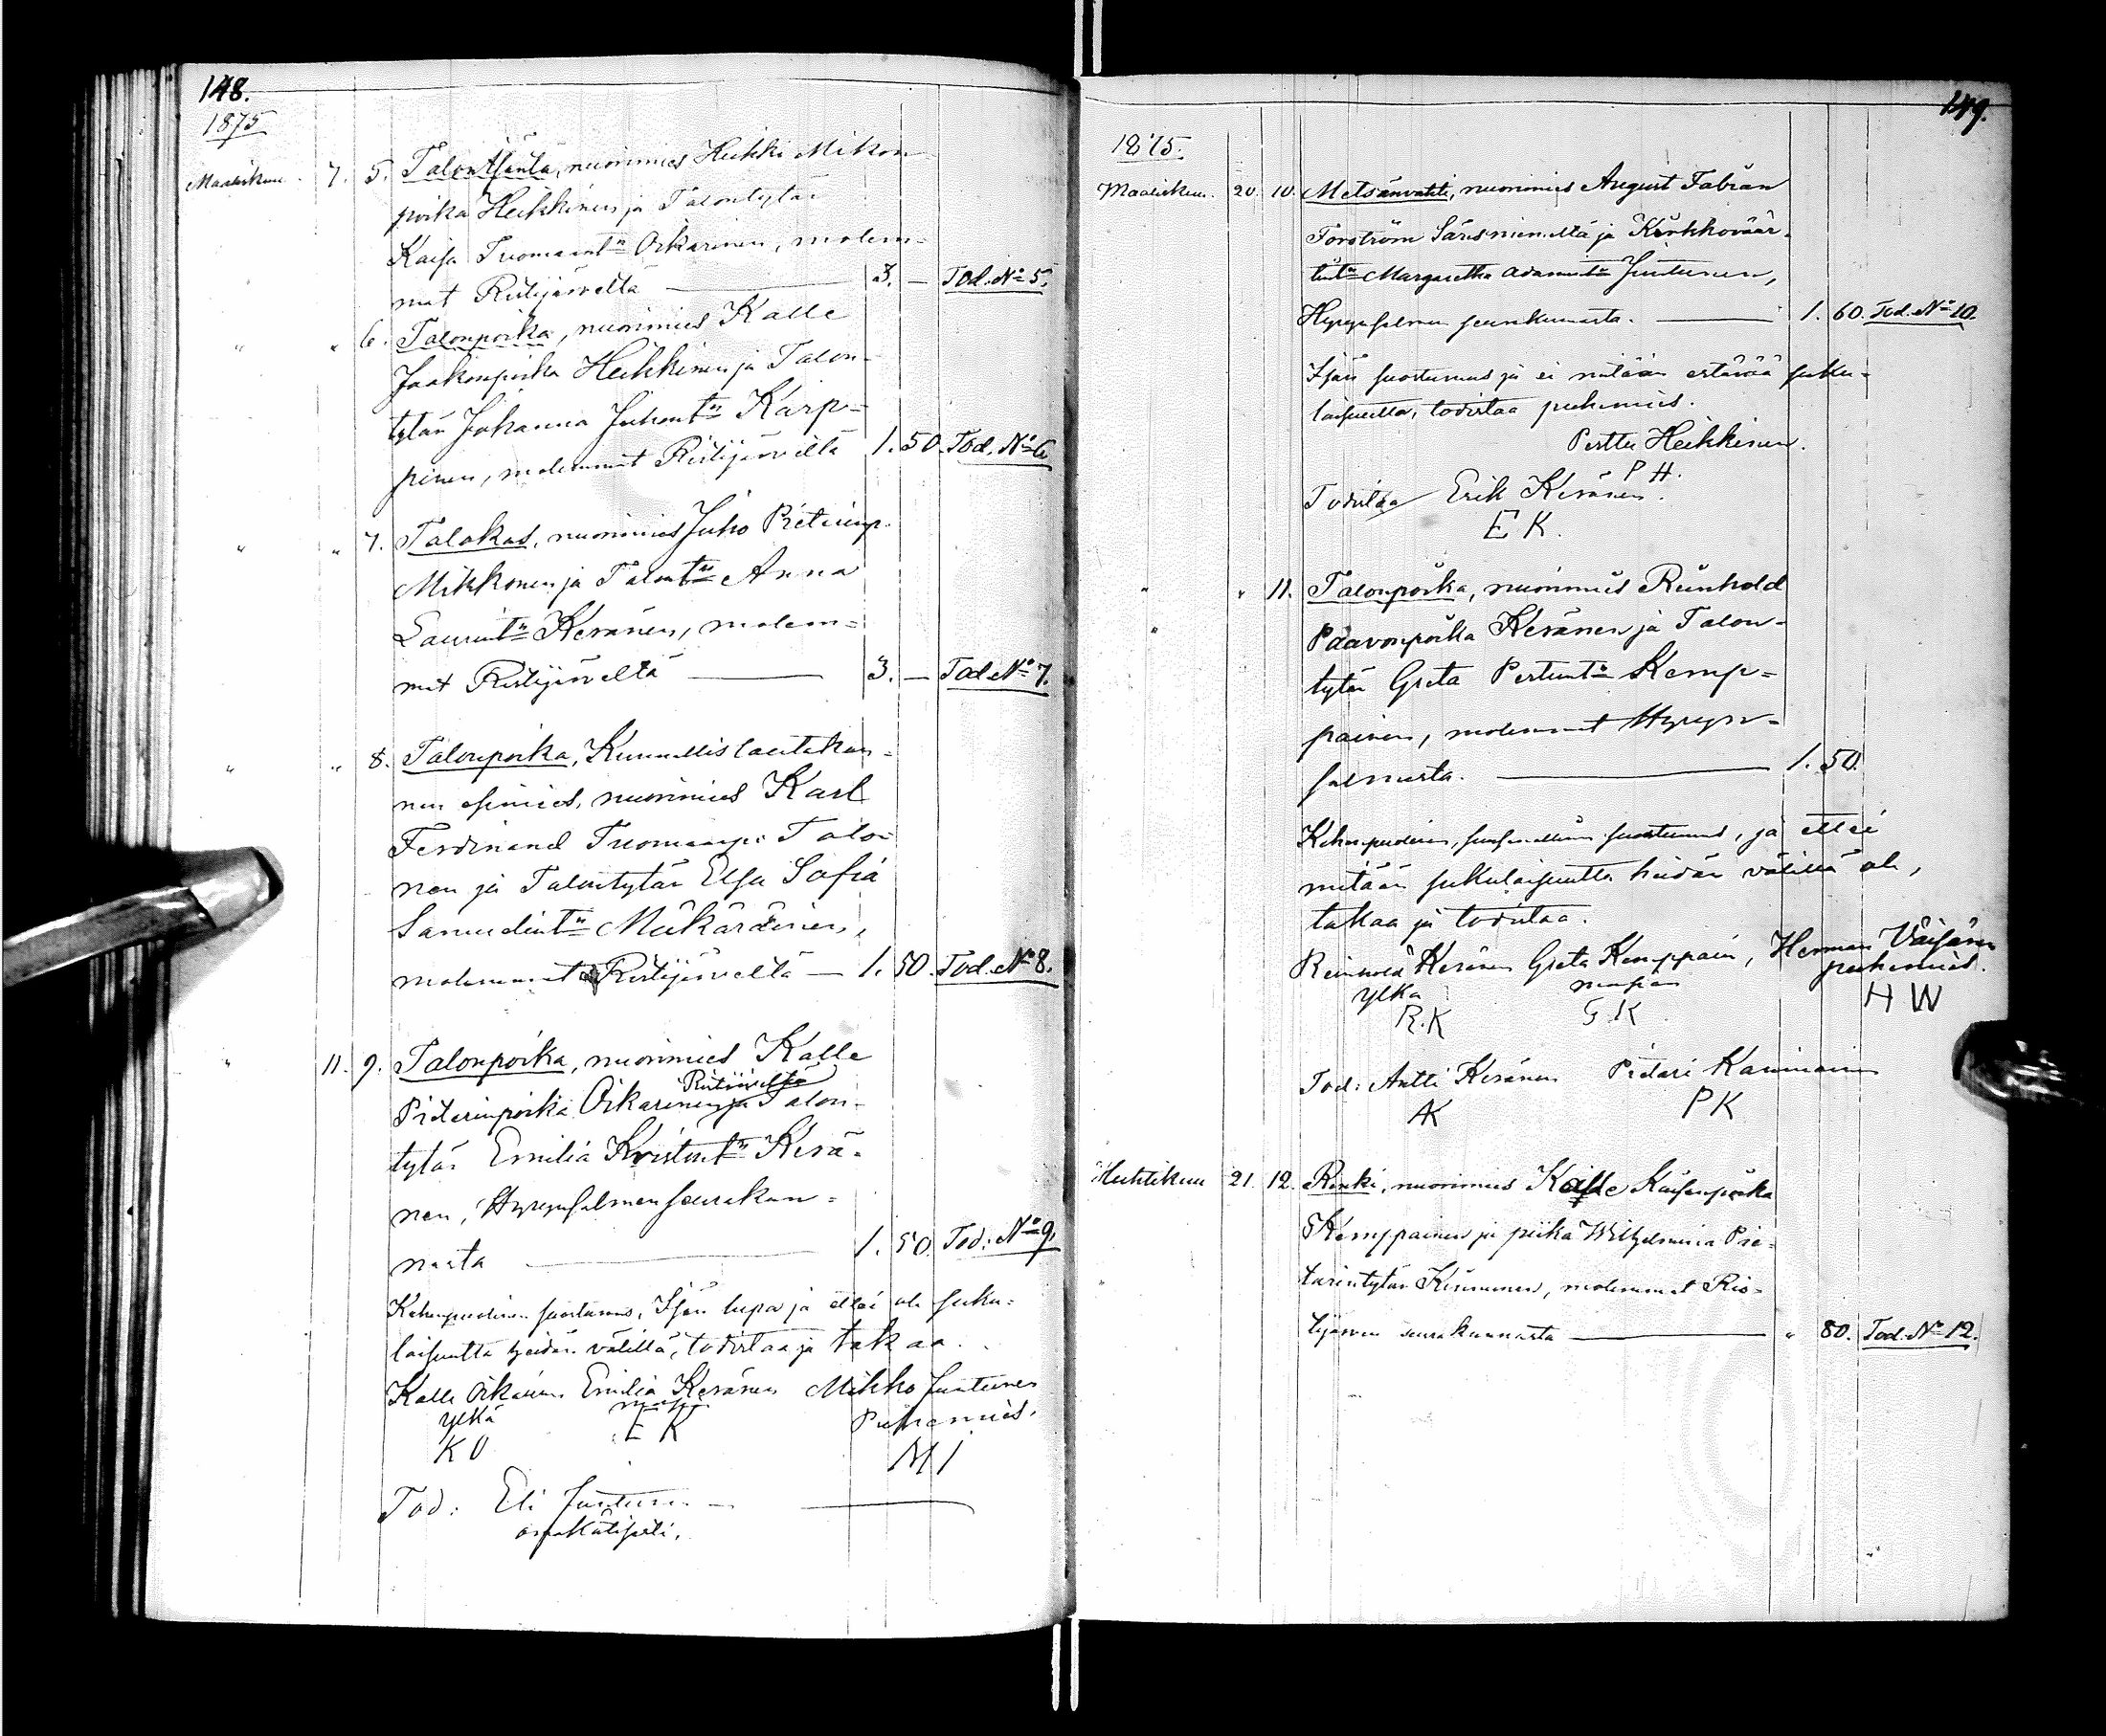 148.
1875
Maaliskuu 7. 5. Talon Isäntä, nuorimies Heikki Mikon
poika Heikkinen ja Talontytär
Kaisa Tuomaant:r Oikarinen, molem=
mat Ristijärveltä — 3. — Tod. No 5.
" " 6. Talonpoika, nuorimies Kalle
Jaakonpoika Heikkinen ja Talon-
tytär Johanna Juhont:r Karp=
pinen, molemmat Ristijärveltä 1. 50. Tod. No 6
" " 7. Talokas, nuorimies Juho Pietarinp.
Mikkonen ja Talont:r Anna
Laurint:r Keränen, molem=
mat Ristijärveltä — 3. — Tod. No 7.
" " 8. Talonpoika, Kunnallislautakun-
nan esimies, nuorimies Karl
Ferdinand Tuomaanp: Talo-
nen ja Talontytär Elsa Sofia
Samuelint:r Mukäräinen,
molemmat Ristijärveltä — 1. 50. Tod. No 8.
" 11. 9. Talonpoika, nuorimies Kalle
Ristijärveltä
Pietarinpoika Oikarinen ja Talon-
tytär Emilia Kristint:r Kerä-
nen, Hyrynsalmen seurakun=
nasta — 1. 50. Tod: No 9.
Kihlapuolisen suostumus, Isän lupa ja ettei ole suku-
laisuutta heidän välillä, todistaa ja takaa.
Kalle Oikarinen Emilia Keränen Mikko Juntunen
ylkä Puhemies.
K O E K M J
Tod: Eli Juntunen
omakätisesti.
149.
1875.
Maaliskuu. 20. 10. Metsänvahti, nuorimies August Fabian
Forström Säresniemeltä ja Kirkkoväär-
tint:r Margaretha Adamint:r Juntunen,
Hyrynsalmen seurakunnasta. — 1. 60. Tod. No 10.
Isän suostumus ja ei mitään estävää suku-
laisuutta, todistaa puhemies.
Perttu Heikkinen.
P H.
Todistaa Erik Keränen.
E K.
" " 11. Talonpoika, nuorimies Reinhold
" Paavonpoika Keränen ja Talon-
tytär Greta Pertunt:r Kemp=
painen, molemmat Hyryn-
salmesta. — 1. 50.
Kihlapuolisen, suostumus, ja ettei
mitään sukulaisuutta heidän välillä ole,
takaa ja todistaa.
Reinhold Keränen Greta Kemppain, Herman Väisänen
ylkä morsian puhemies.
R.K G.K H W
Tod: Antti Keränen Pietari Kanniainen
AK P K
Huhtikuu 21. 12. Renki, nuorimies Kalle Kaisanpoika
Kemppainen ja piika Wilhelmina Pie-
tarintytär Kinnunen, molemmat Ris-
tijärven seurakunnasta — " 80. Tod. No 12.